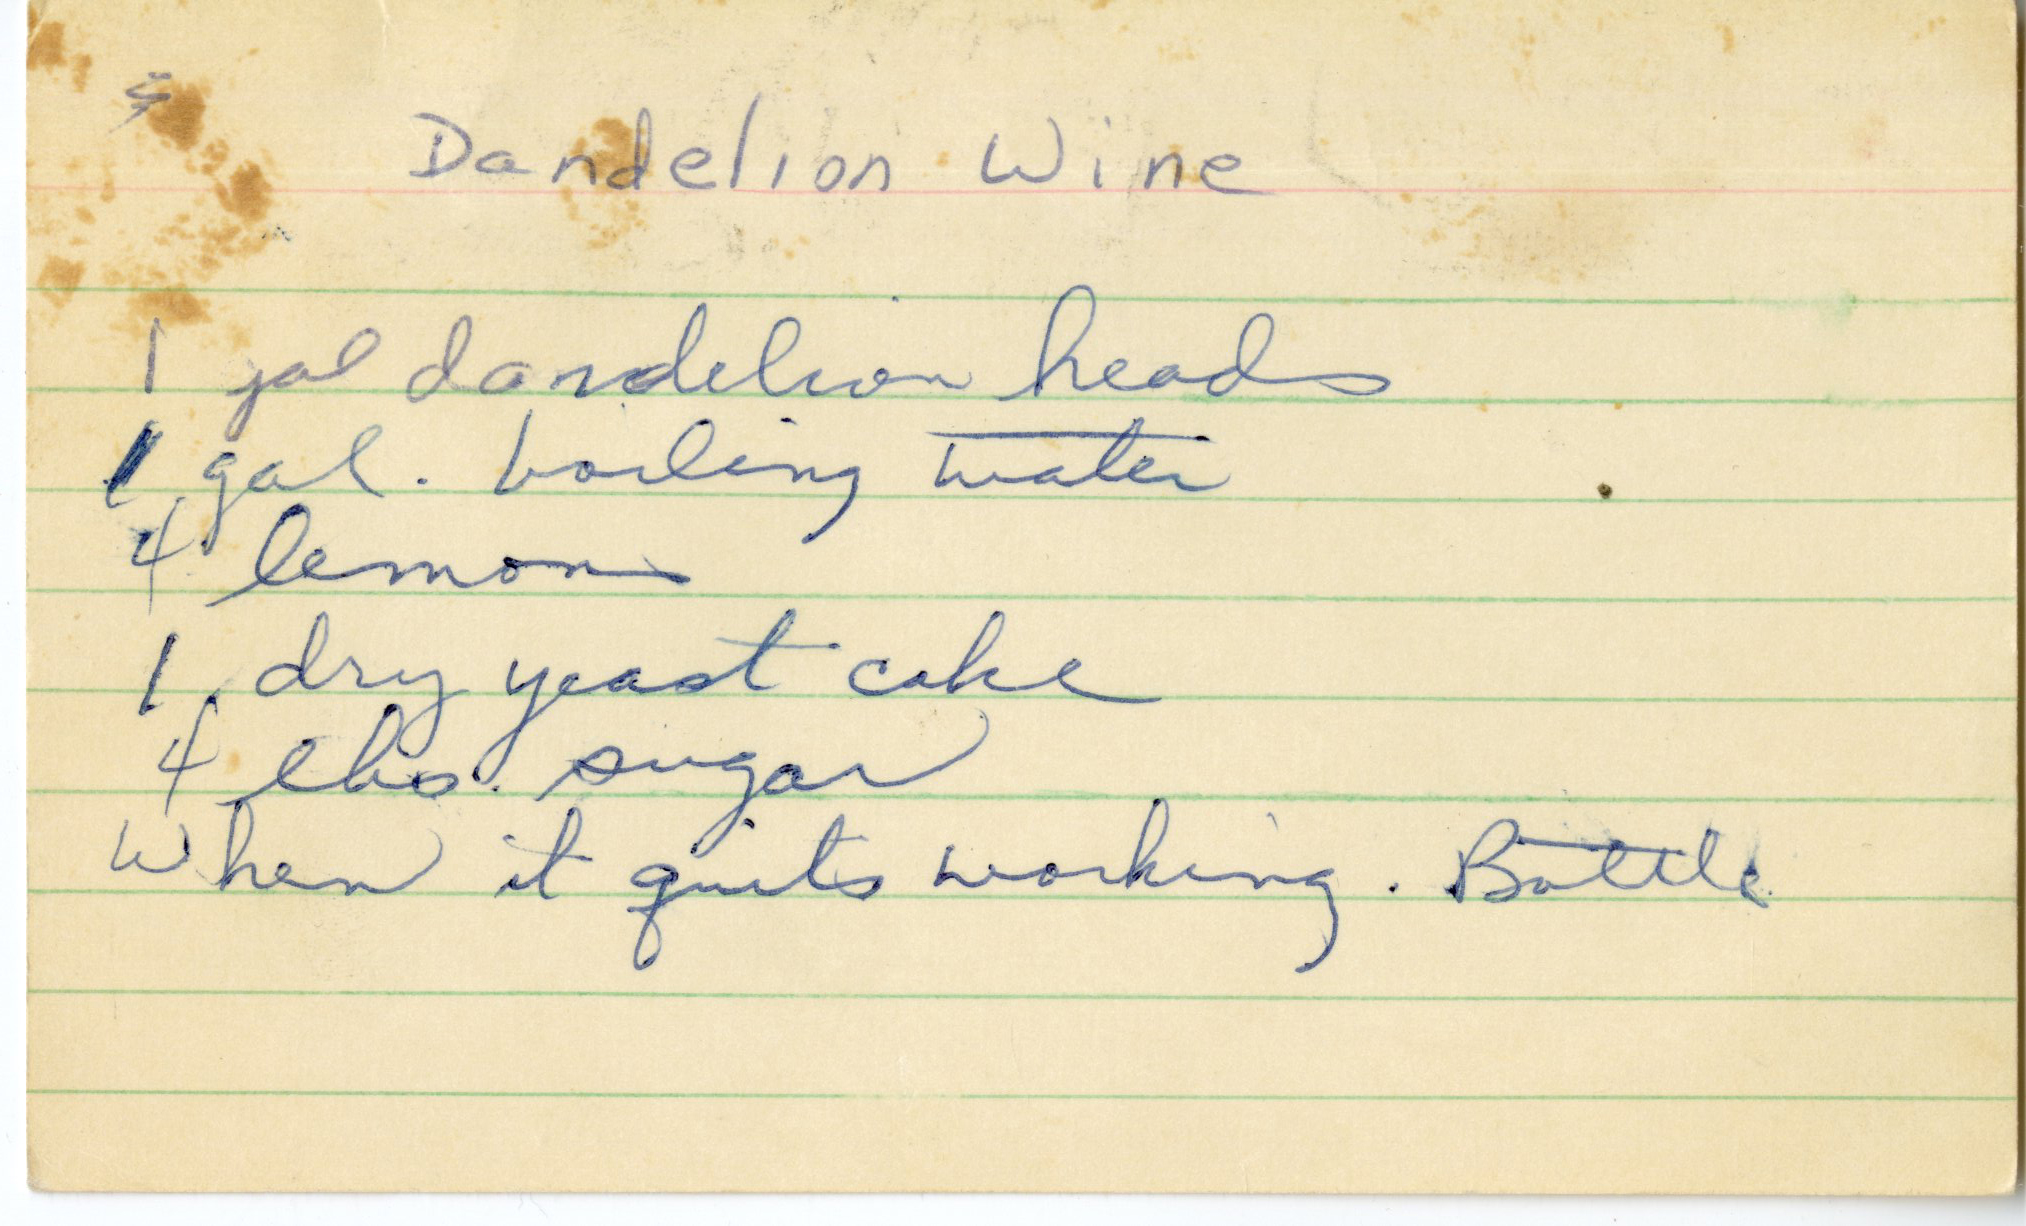 Dandelion Wine
1 gal dandelion heads
1 gal. boiling water
4 lemons
1 dry yeast cake
4 lbs. sugar
When it quits working. Bottle